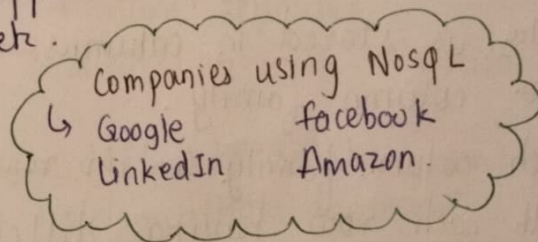 etc.
Companies using NosQL
↳ Google facebook
LinkedIn Amazon.